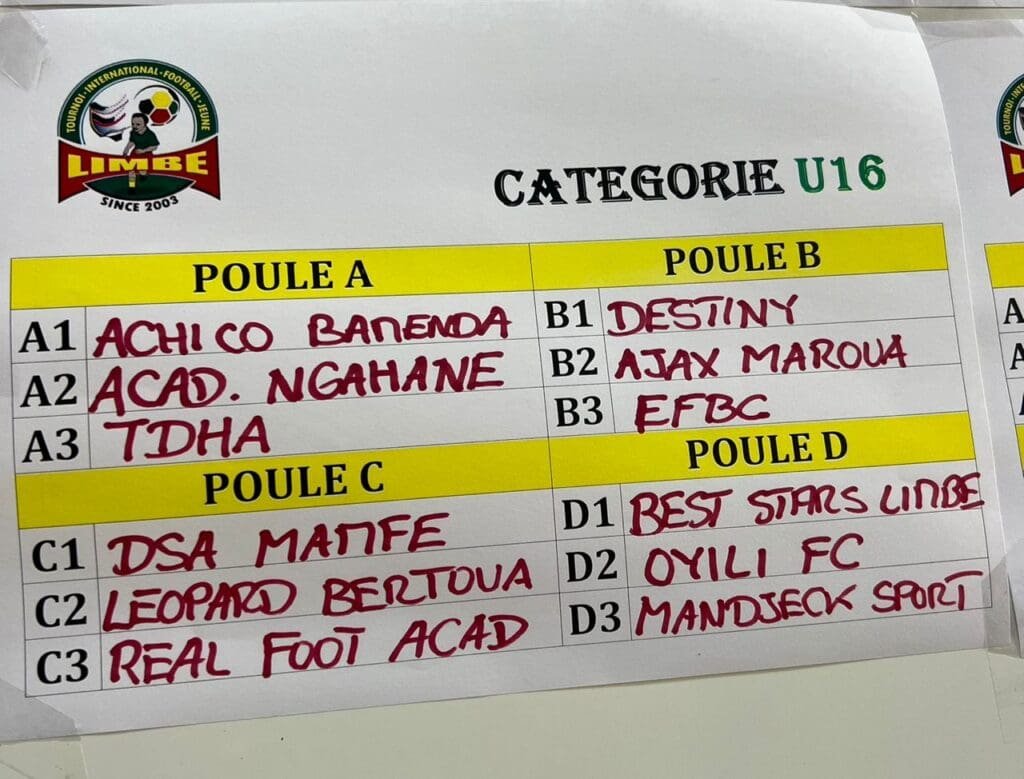 TOURNOI - INTERNATIONAL - FOOTBALL - JEUNE
LIMBE
SINCE 2003
CATEGORIE U16
POULE A
A1 ACHICO BAMENDA
A2 ACAD. NGAHANE
A3 TDHA
POULE B
B1 DESTINY
B2 AJAX MAROUA
B3 EFBC
POULE C
C1 DSA MAMFE
C2 LEOPARD BERTOUA
C3 REAL FOOT ACAD
POULE D
D1 BEST STARS LIMBE
D2 OYILI FC
D3 MANDJECK SPORT